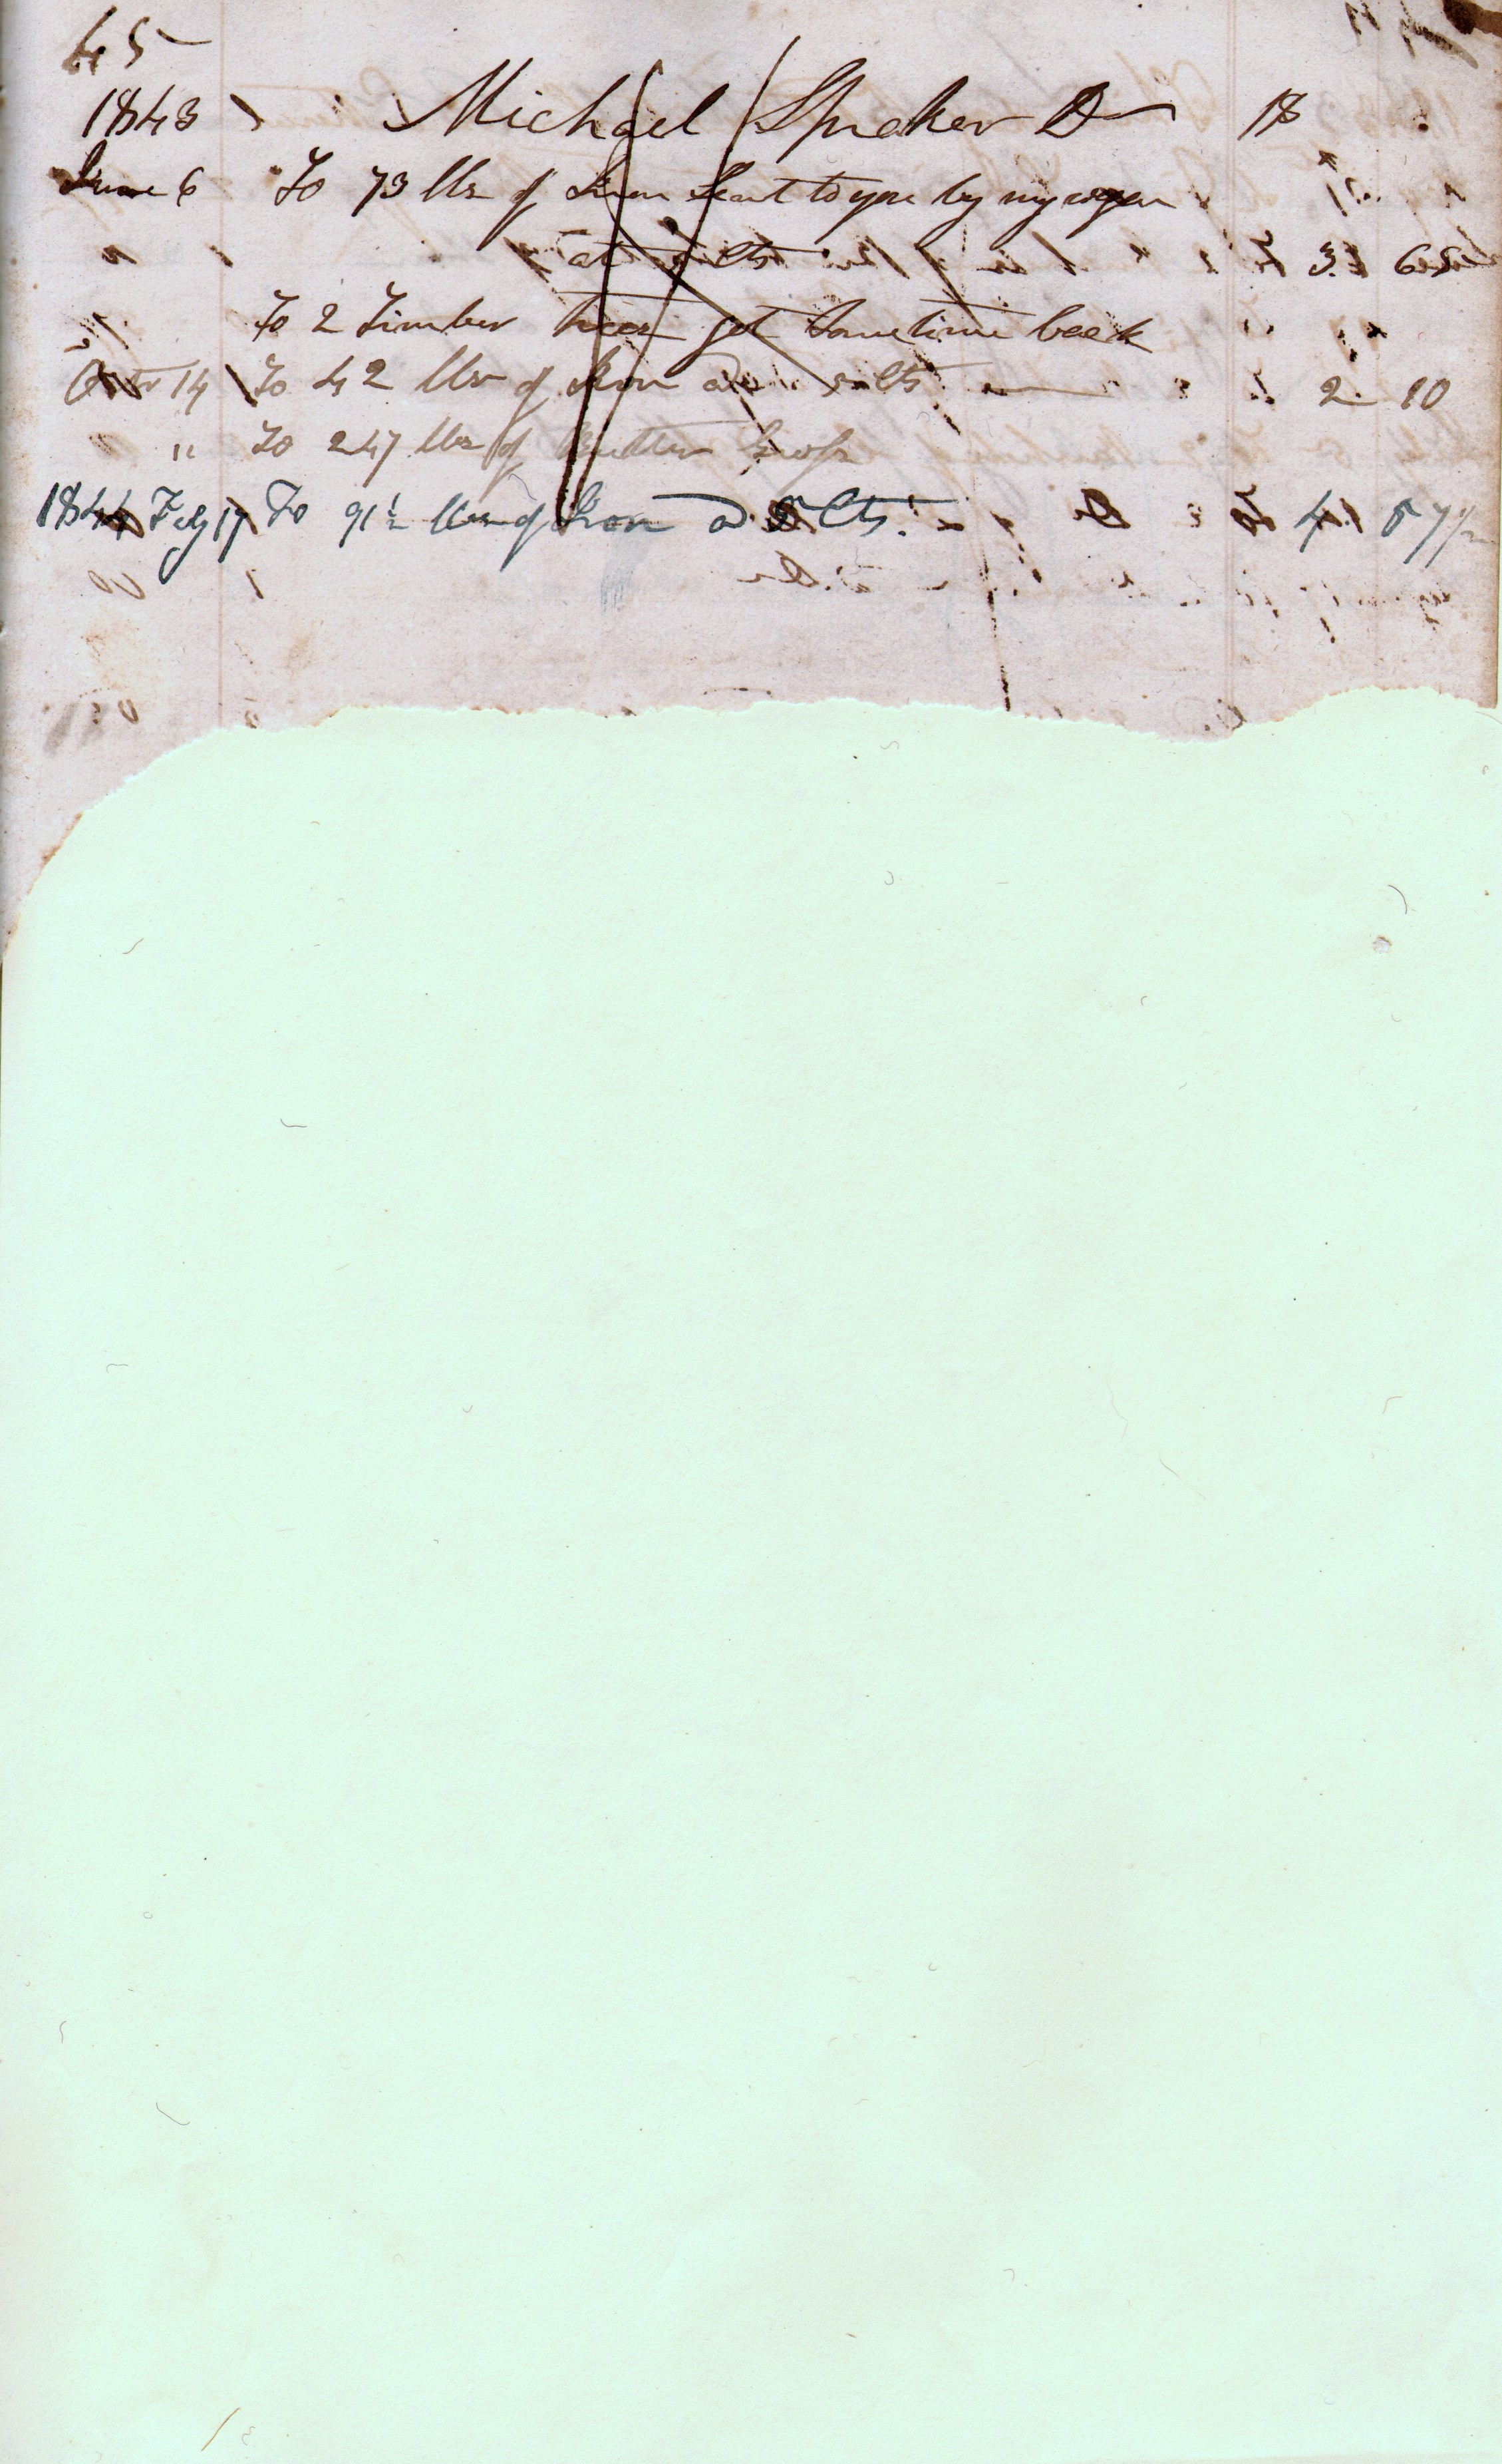 45
1843 Michael Spraker Dr $
June 6 To 73 lbs of Iron Sent to you by my wagon
" at 5 Cts 3. 65
To 2 Timber trees got Sometime back
Octr 14 To 42 lbs of Iron a 5 Cts 2 10
" To 247 lbs of Butter Gross
1844 Feby 17 To 91½ lbs of Iron a 5 Cts. 4 57½